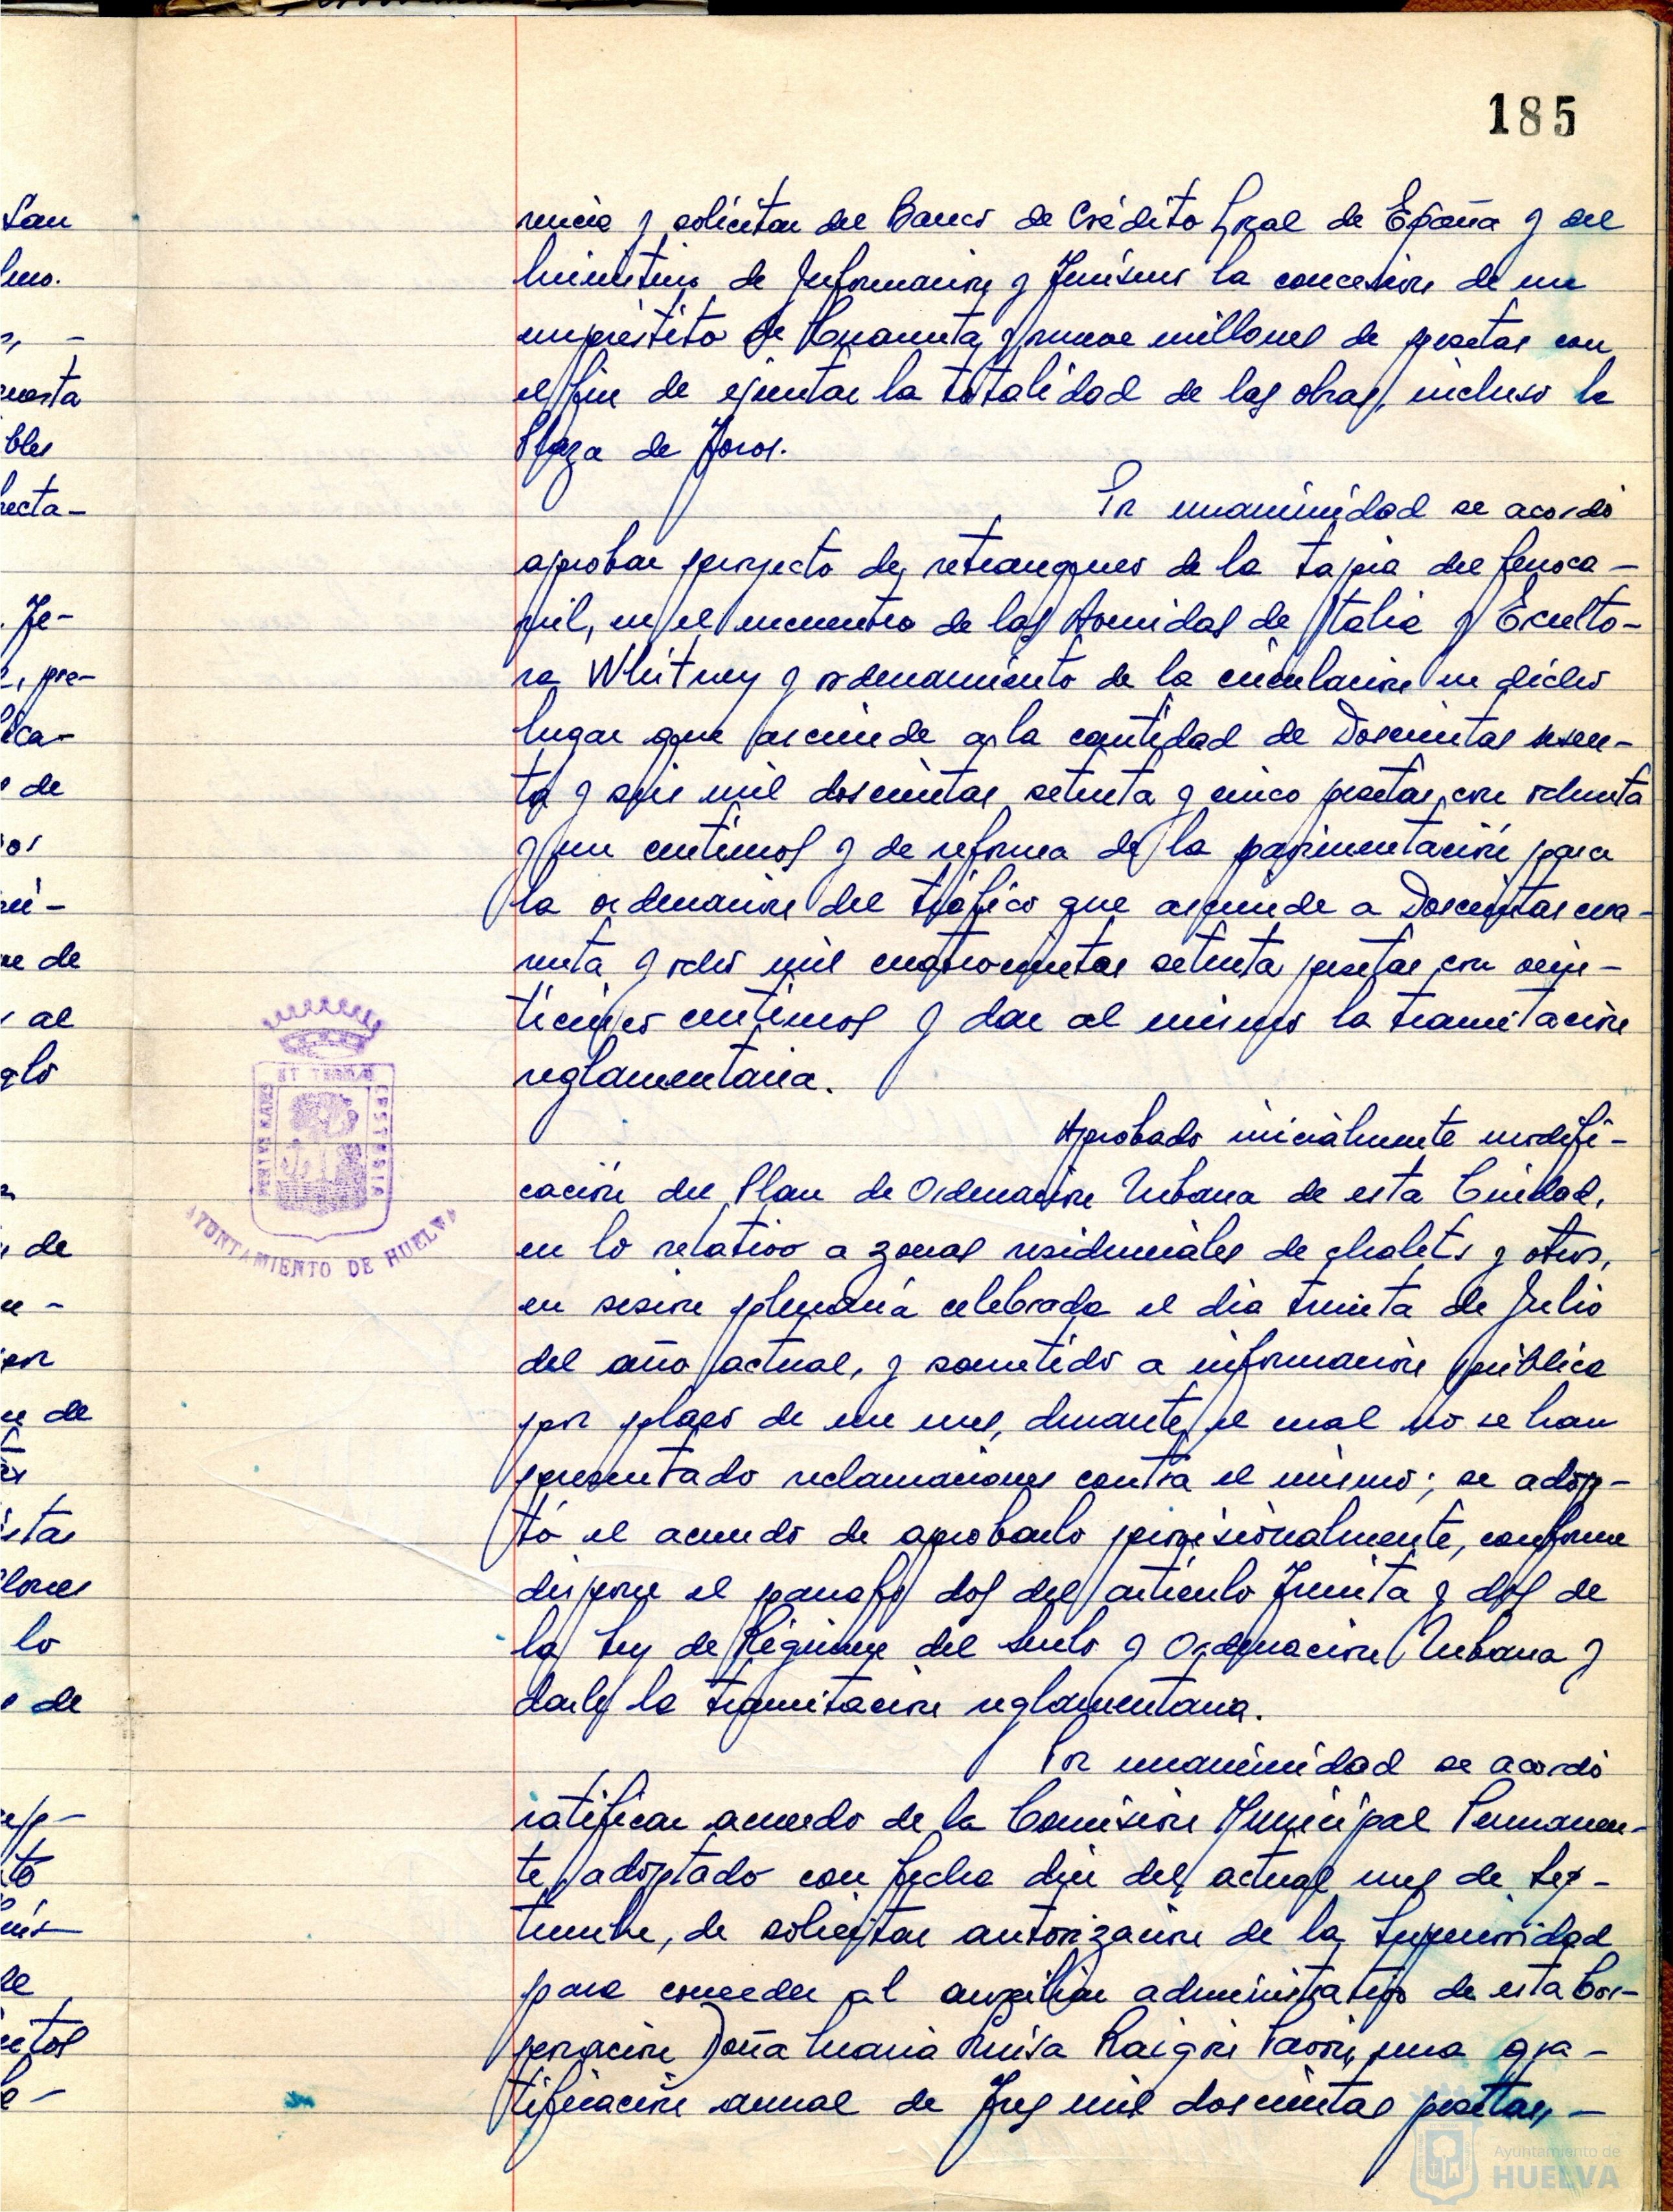 185
rencia y solicitar del Banco de Crédito Local de España y del
Ministerio de Información y Turismo la concesión de un
empréstito de Cuarenta y nueve millones de pesetas con
el fin de ejecutar la totalidad de las obras, incluso la
Plaza de Toros.
Por unanimidad se acordó
aprobar proyecto de retranqueo de la tapia del ferroca-
rril, en el encuentro de las Avenidas de Italia y Esculto-
ra Whitney y ordenamiento de la circulación en dicho
lugar que asciende a la cantidad de Doscientas sesen-
ta y seis mil doscientas setenta y cinco pesetas con ochenta
y un centimos y de reforma de la pavimentación para
la ordenación del tráfico que asciende a Doscientas cua-
renta y ocho mil cuatrocientas setenta pesetas con vein-
ticinco centimos y dar al mismo la tramitación
reglamentaria.
Aprobado inicialmente modifi-
cación del Plan de Ordenación Urbana de esta Ciudad,
en lo relativo a zonas residenciales de chalets y otros,
en sesión plenaria celebrada el día treinta de Julio
del año actual, y sometido a información pública
por plazo de un mes, durante el cual no se han
presentado reclamaciones contra el mismo; se adop-
tó el acuerdo de aprobarlo provisionalmente, conforme
dispone el parrafo dos del artículo Treinta y dos de
la Ley de Régimen del Suelo y Ordenación Urbana y
darle la tramitación reglamentaria.
Por unanimidad se acordó
ratificar acuerdo de la Comisión Municipal Permanen-
te, adoptado con fecha diez del actual mes de Sep-
tiembre, de solicitar autorización de la Superioridad
para conceder al auxiliar administrativo de esta Cor-
poración Doña Maria Luisa Raigón Pavón, una gra-
tificación anual de Tres mil doscientas pesetas, -
AYUNTAMIENTO DE HUELVA
Ayuntamiento de
HUELVA